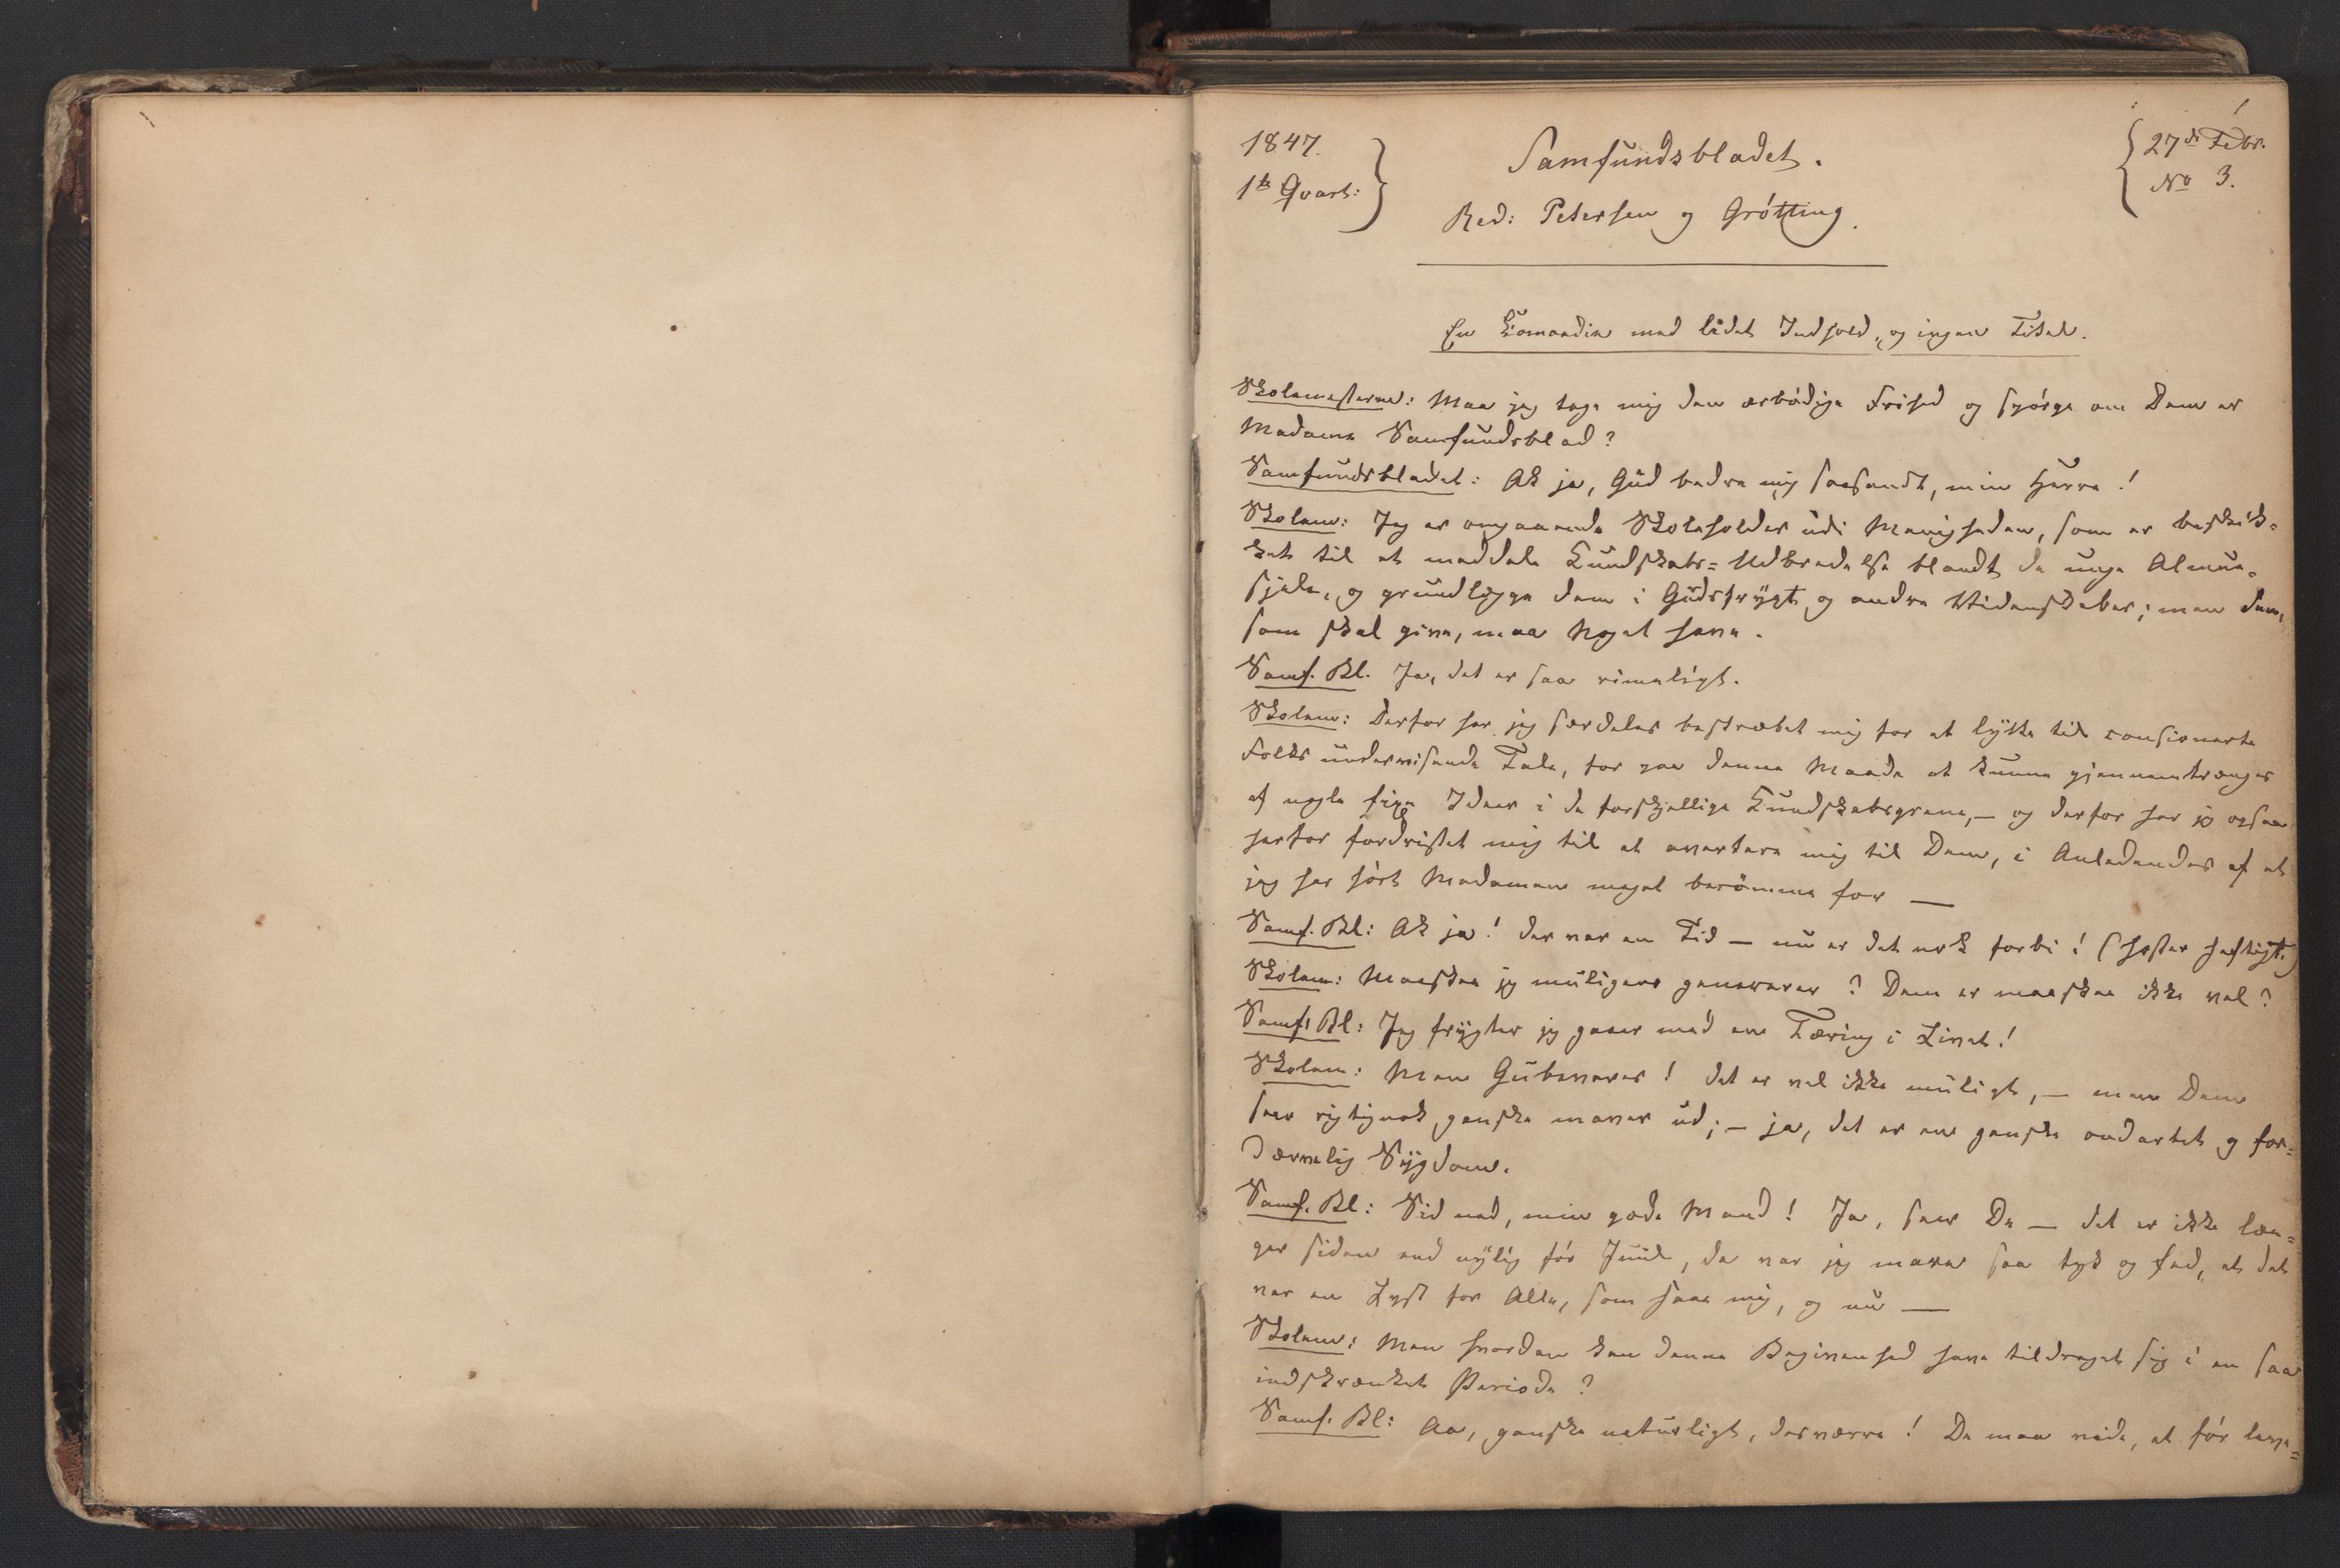 1847.
1te Qvart:
Samfundsbladet.
Red: Petersen og Grøtting.
27de Febr.
No 3.
En Komoedie med lidet Indhold, og ingen Titel.
Skolemesteren: Maa jeg tage mig den ærbødige Frihed og spørge om Dem er
Madame Samfundsblad?
Samfundsbladet: Ak ja, Gud bedre mig saasandt, min Herre!
Skolem: Jeg er omgaaende Skoleholder udi Menigheden, som er beskik-
ket til at meddele Kundskabs-Udbredelse blandt de unge Almue-
sjele, og grundlægge dem i Gudsfrygt og andre Widenskaber; men den,
som skal give, maa Noget have.
Samf. Bl. Ja, det er saa rimeligt.
Skolem: Derfor har jeg særdeles bestræbet mig for at lytte til consionerte
Folks underviisende Tale, for paa denne Maade at kunne gjennemtrænges
af nogle fixe Ideer i de forskjellige Kundskabsgrene, — og derfor har jeg ogsaa
herfor fordristet mig til at avertere mig til Dem, i Anledendes af at
jeg har hørt Madamen meget berømme for —
Samf. Bl: Ak ja! der var en Tid — nu er det nok forbi! (hoster heftigt.)
Skolem: Maaskee jeg muligens genererer? Dem er maaskee ikke vel?
Samf. Bl: Jeg frygter jeg gaaer med en Tæring i Livet!
Skolem: Men Gubevares! det er vel ikke muligt, — men Dem
seer rigtignok ganske maver ud; — ja, det er en ganske ondartet og for-
dærvelig Sygdom.
Samf. Bl: Sid ned, min gode Mand! Ja, seer De — det er ikke læn-
ger siden end nylig før Juul, da var jeg mava saa tyk og fed, at det
var en Lyst for Alle, som saae mig, og nu —
Skolem: Men hvordan kan denne Begivenhed have tildraget sig i en saa
indskrænket Periode?
Samf. Bl: Aa, ganske naturligt, desværre! De maa vide, at før leve-